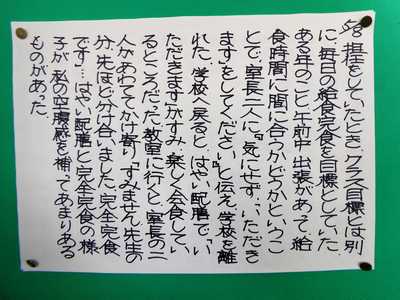 5/8
担任をしていたとき、クラス目標とは別
に、毎日の給食完食を目標としていた。
ある年のこと、午前中出張があって、給
食時間に間に合うかどうかというこ
とで、室長二人に、『気にせず…いただき
ます』をしてください。』と伝え、学校を離
れた。学校へ戻ると、はやい配膳で、「い
ただきます」がすみ、楽しく会食してい
るところだった。教室に行くと、室長の二
人があわててかけ寄り、「すみません、先生の
分、先ほど分け合いました。完全完食
です…」はやい配膳と完全完食の様
子が、私の空腹感を補ってあまりある
ものがあった。